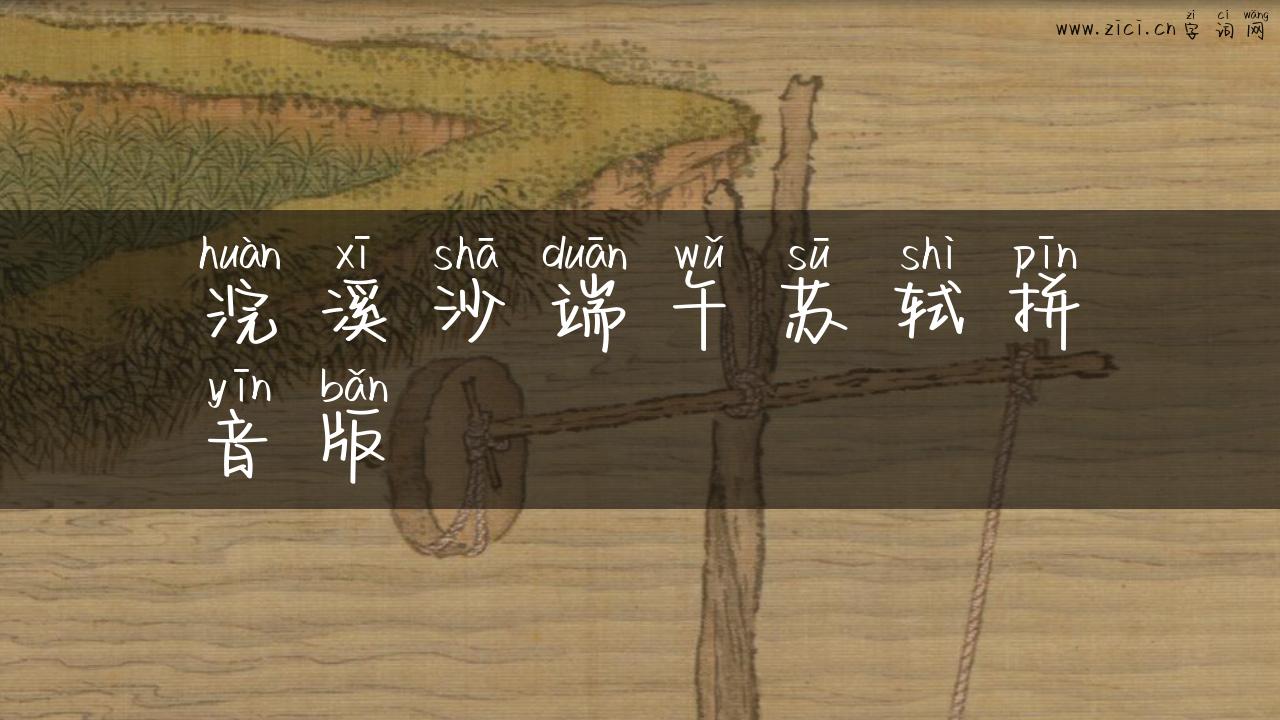 zì cí wǎng
www.zici.cn 字 词 网
huàn xī shā duān wǔ sū shì pīn
浣 溪 沙 端 午 苏 轼 拼
yīn bǎn
音 版